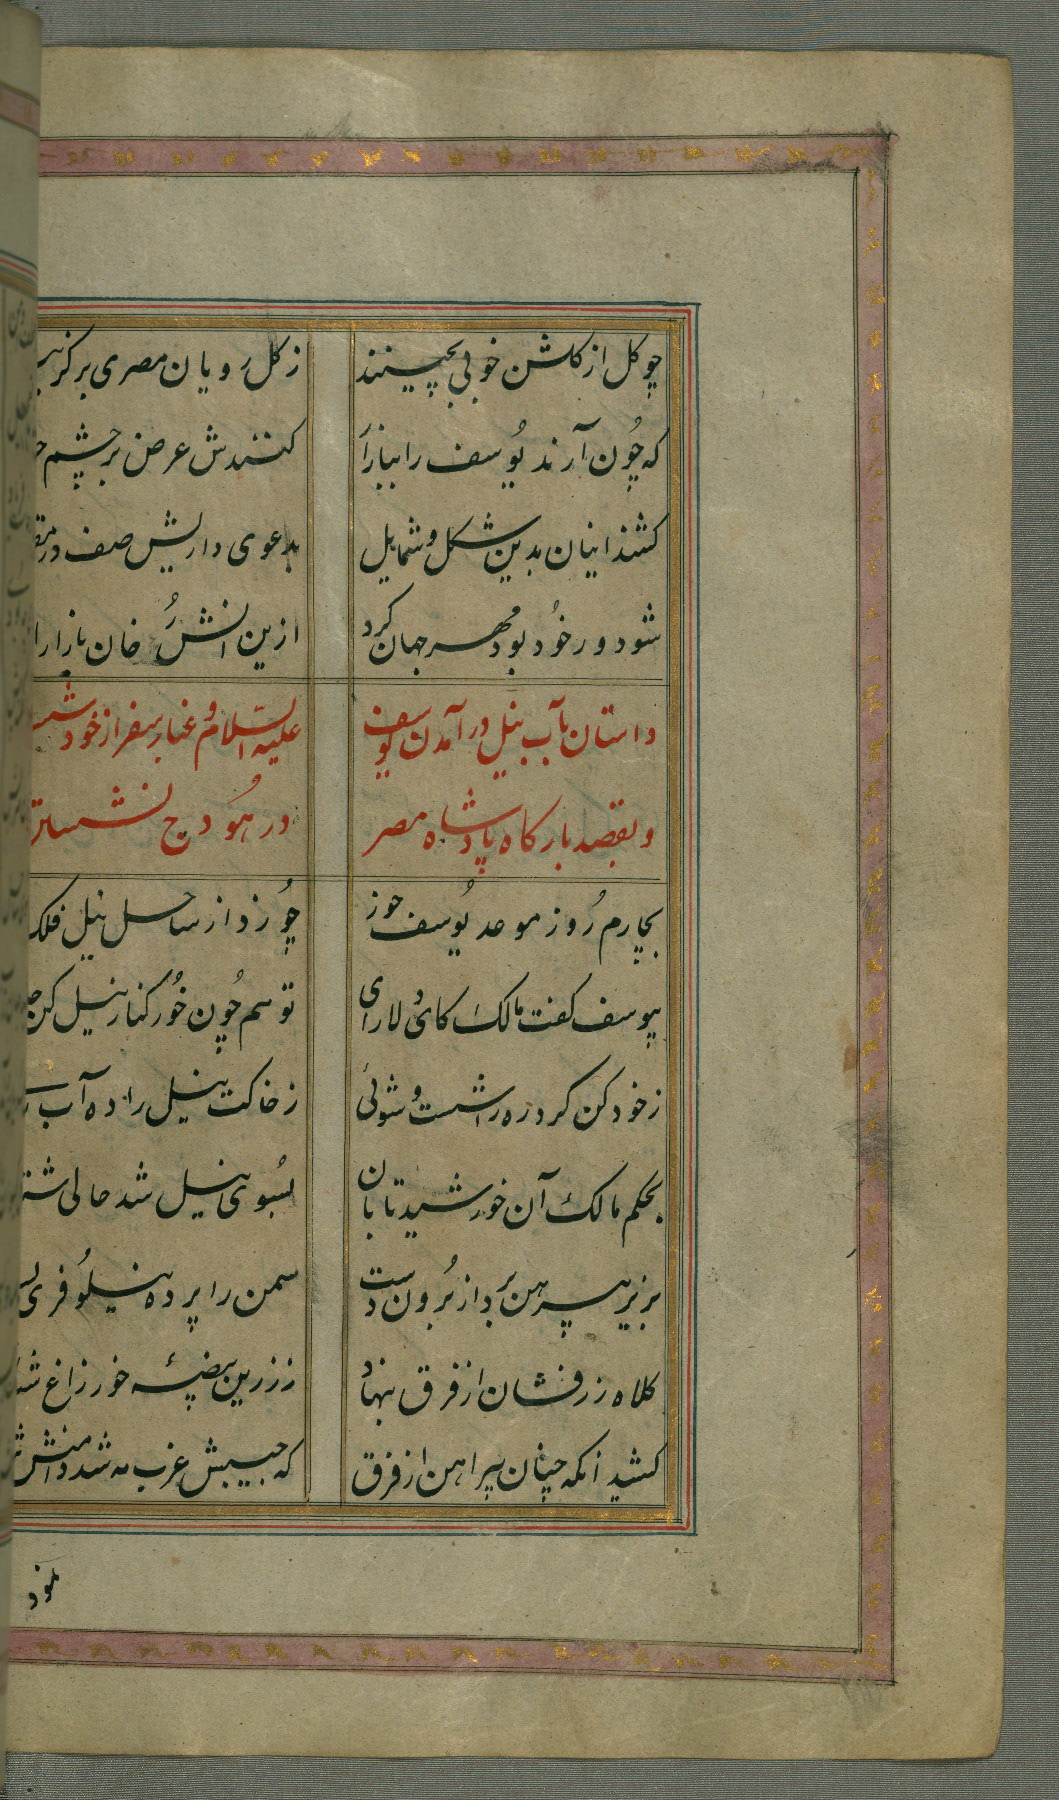 چو کل از کلشن خوبی بچینند ز کل رویان مصری
که چون آرند یوسف را ببازار کنندش عرض بر چشم
کشند اینان بدین شکل و شمایل بدعوی داریش صف در
شود ور خود بود مهر جهان کرد ازین آتش رخان بازار
داستان بآب نیل در آمدن یوسف علیه السلام و غبار سفر از خود
و بقصد بارکاه پادشاه مصر در هودج نشستن
بچارم روز موعد یوسف خور چو زد از ساحل نیل فلک
بیوسف کفت مالک کای دلارای تو هم چون خور کنار نیل کن
ز خود کن کرد ره را شست و شوئی ز خاکت نیل را ده آب
بحکم مالک آن خورشید تابان بسوی نیل شد حالی
بزیر پیرهن برد از برون دست سمن را پرده نیلوفری
کلاه زرفشان از فرق بنهاد ز زرین بیضهٔ خور زاغ
کشید آنکه چنان پیراهن از فرق که جیبش غرب مه شد دامنش
نمود